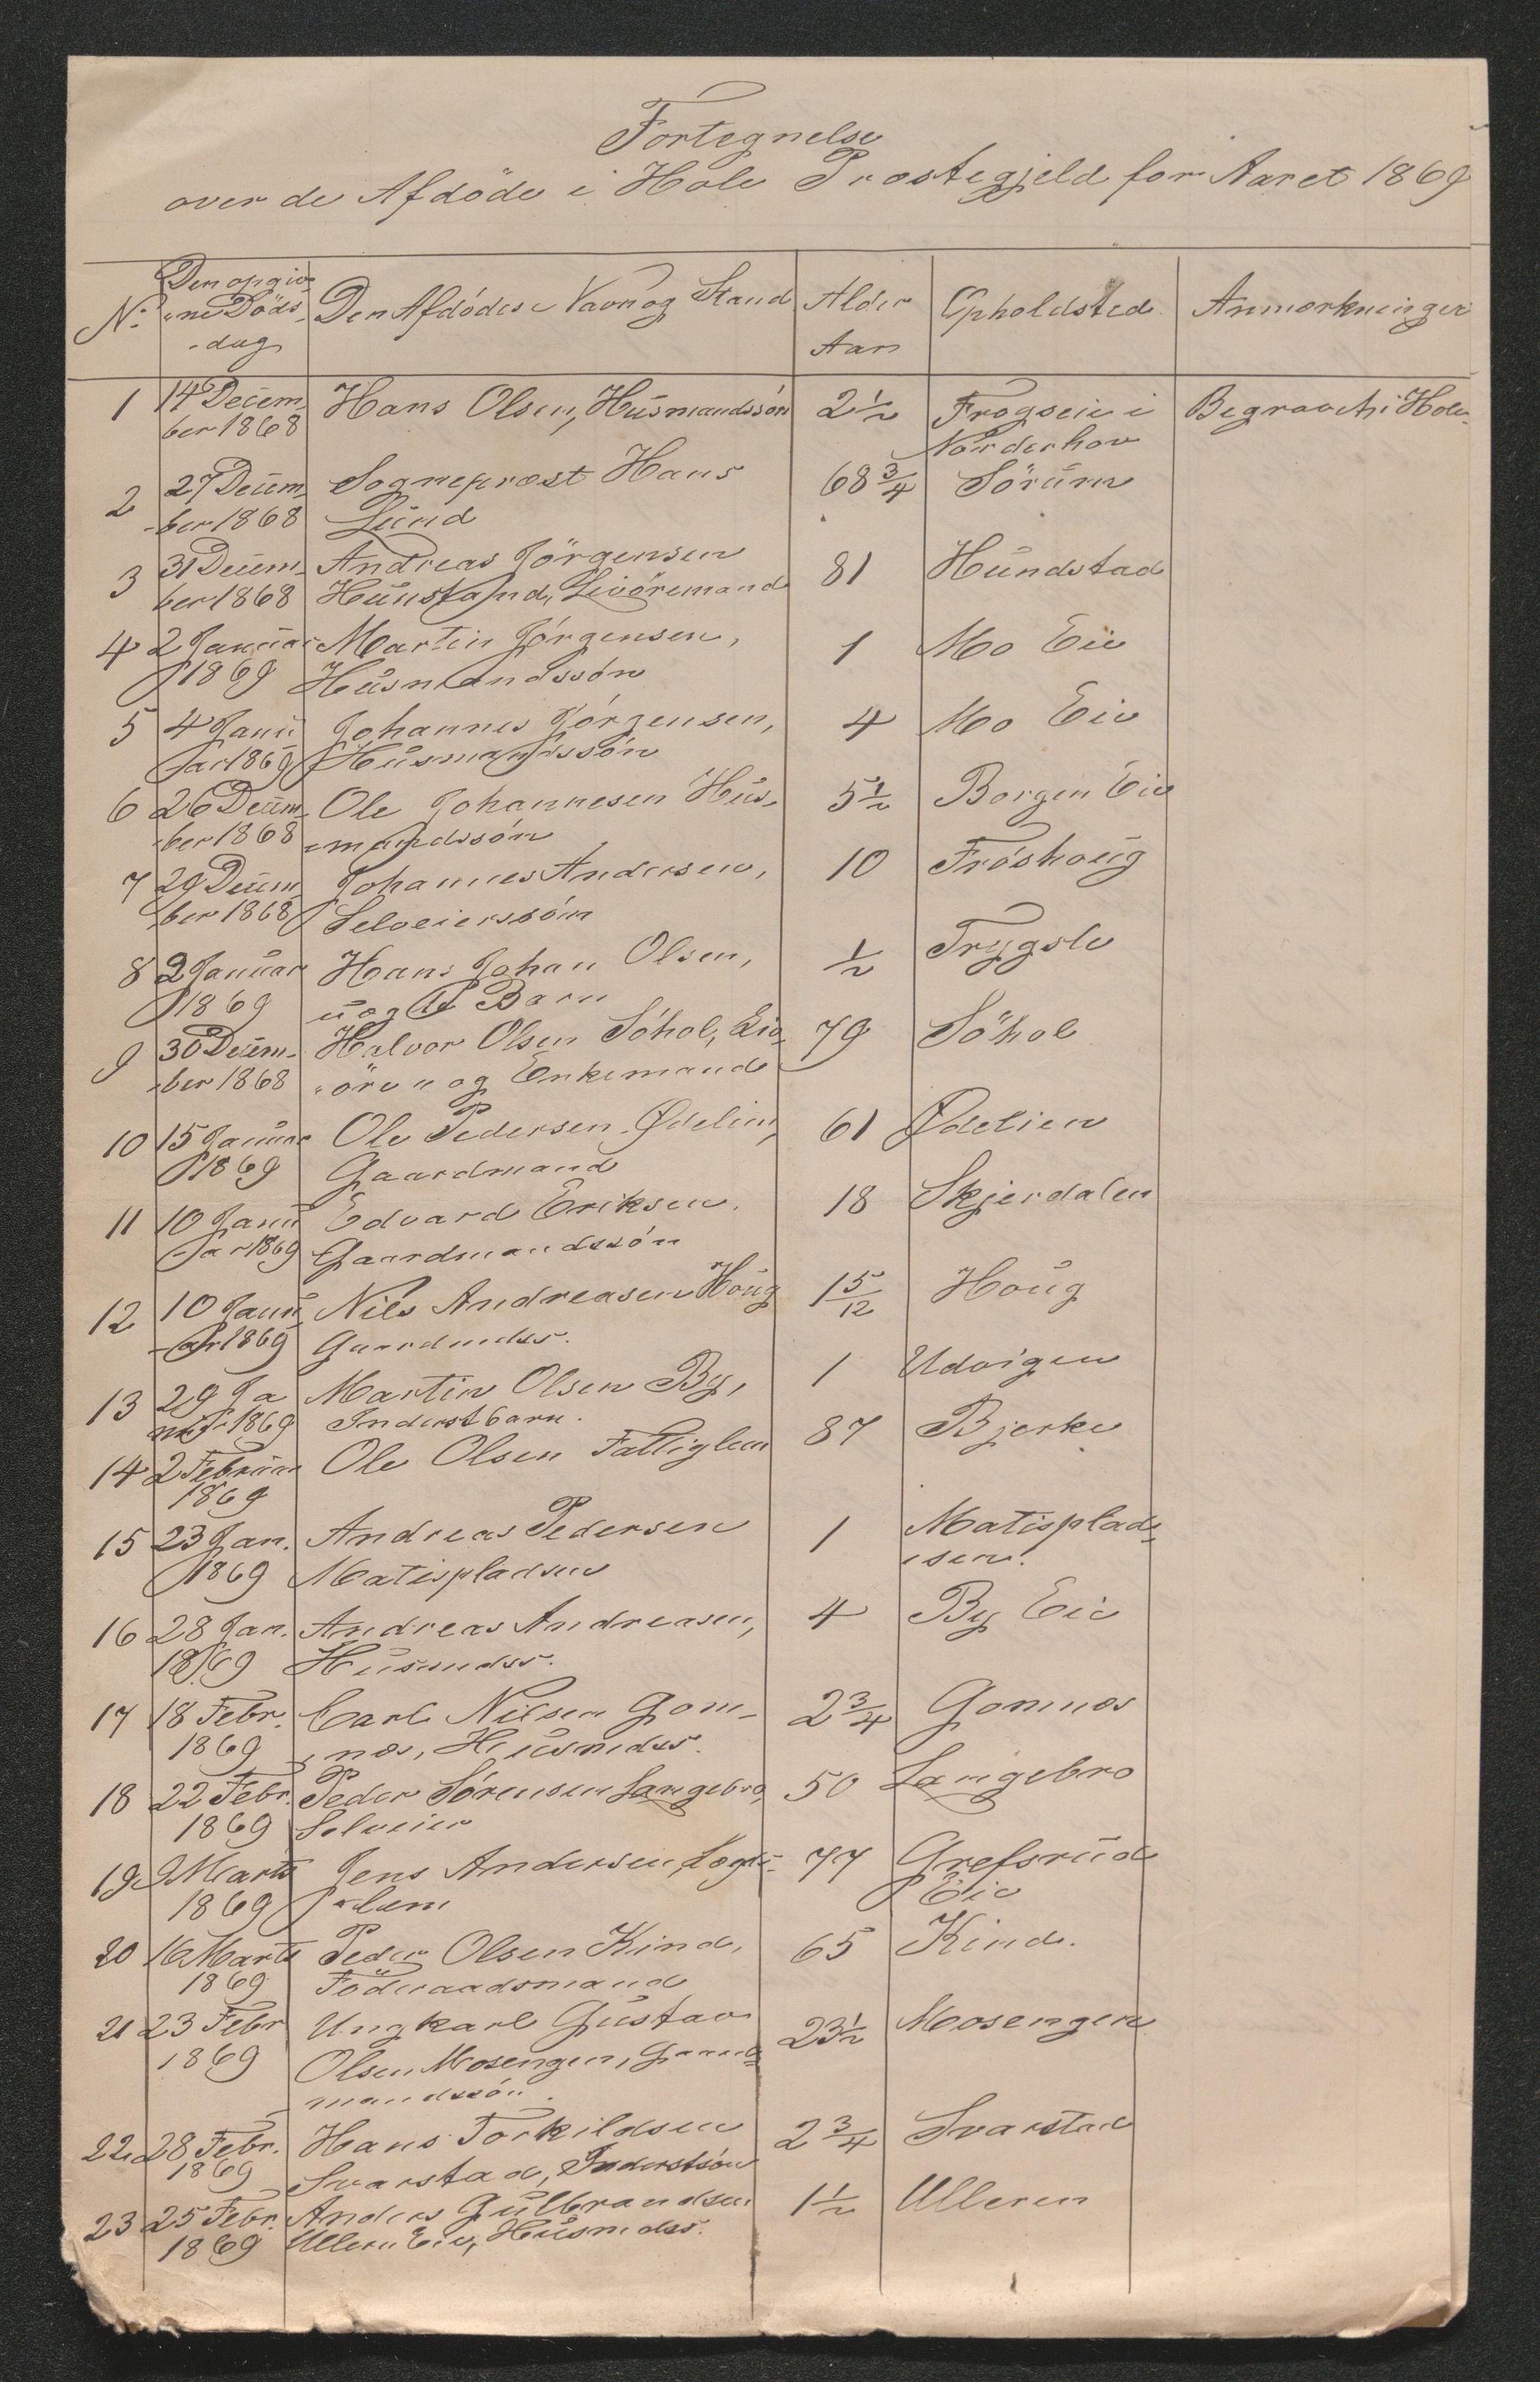 Fortegnelse
over de Afdöde i Hole Præstegjeld for Aaret 1869
No Den opgiv- Den Afdödes Navn og Stand Alder Opholdsted Anmærkninger
ne Döds-
-dag Aar
1 14 Decem Hans Olsen, Husmandssön 2 1/2 Frogseie i Begravet i Hole
ber 1868 Norderhov
2 27 Decem- Sognepræst Hans 68 3/4 Sörum
-ber 1868 Lund
3 31 Decem- Andreas Jörgensen 81 Hundstad
ber 1868 Livöremand
4 2 Januar Martin Jörgensen, 1 Mo Eie
1869 Husmandssön
5 4 Janu Johannes Jörgensen, 4 Mo Eie
-ar 1869 Husmandssön
6 26 Decem- Ole Johannesen Hus- 5 1/2 Borgen Eie
-ber 1868 -mandssön
7 29 Decem Johannes Andersen, 10 Fröshoug
ber 1868 Selveierssön
8 2 Januar Hans Johan Olsen, 1/2 Trygsle
1869 uægte Barn
9 30 Decem- Halvor Olsen Söhol, Liv- 79 Söhol
-ber 1868 og Enkemand
10 15 Januar Ole Pedersen Ødelien, 61 Ødelien
1869 Gaardmand
11 10 Janu Edvard Eriksen, 18 Skjerdalen
-ar 1869 Gaardmandssön
12 10 Janu- Nils Andreasen Houg 1 5/12 Houg
-ar 1869 Gaardmdss.
13 29 Ja Martin Olsen By, 1 Udvigen
nuar 1869 Inderstbarn.
14 2 Februar Ole Olsen Fattiglem 87 Bjerke
1869
15 23 Jan. Andreas Pedersen 1 Matisplads-
1869 Matispladsen sen.
16 28 Jan. Andreas Andreasen, 4 By Eie
1869 Husmdss.
17 18 Febr. Carl Nilsen Gom- 2 3/4 Gomnæs
1869 -næs, Husmdss.
18 22 Febr. Peder Sörensen Langebro, 50 Langebro
1869 Selveier
19 9 Marts Jens Andersen, Lægds- 77 Grefsrud
1869 -lem Eie
20 16 Marts Peder Olsen Kind, 65 Kind.
1869 Föderaadsmand
21 23 Febr Ungkarl Gustav 23 1/2 Mosengen
1869 Olsen Mosengen, Gaard-
mandssön.
22 28 Febr. Hans Torkildsen 2 3/4 Svarstad
1869 Svarstad, Inderstsön
23 25 Febr. Anders Gulbrandsen 1 1/2 Ulleren
1869 Ulleren Eie, Husmdss.